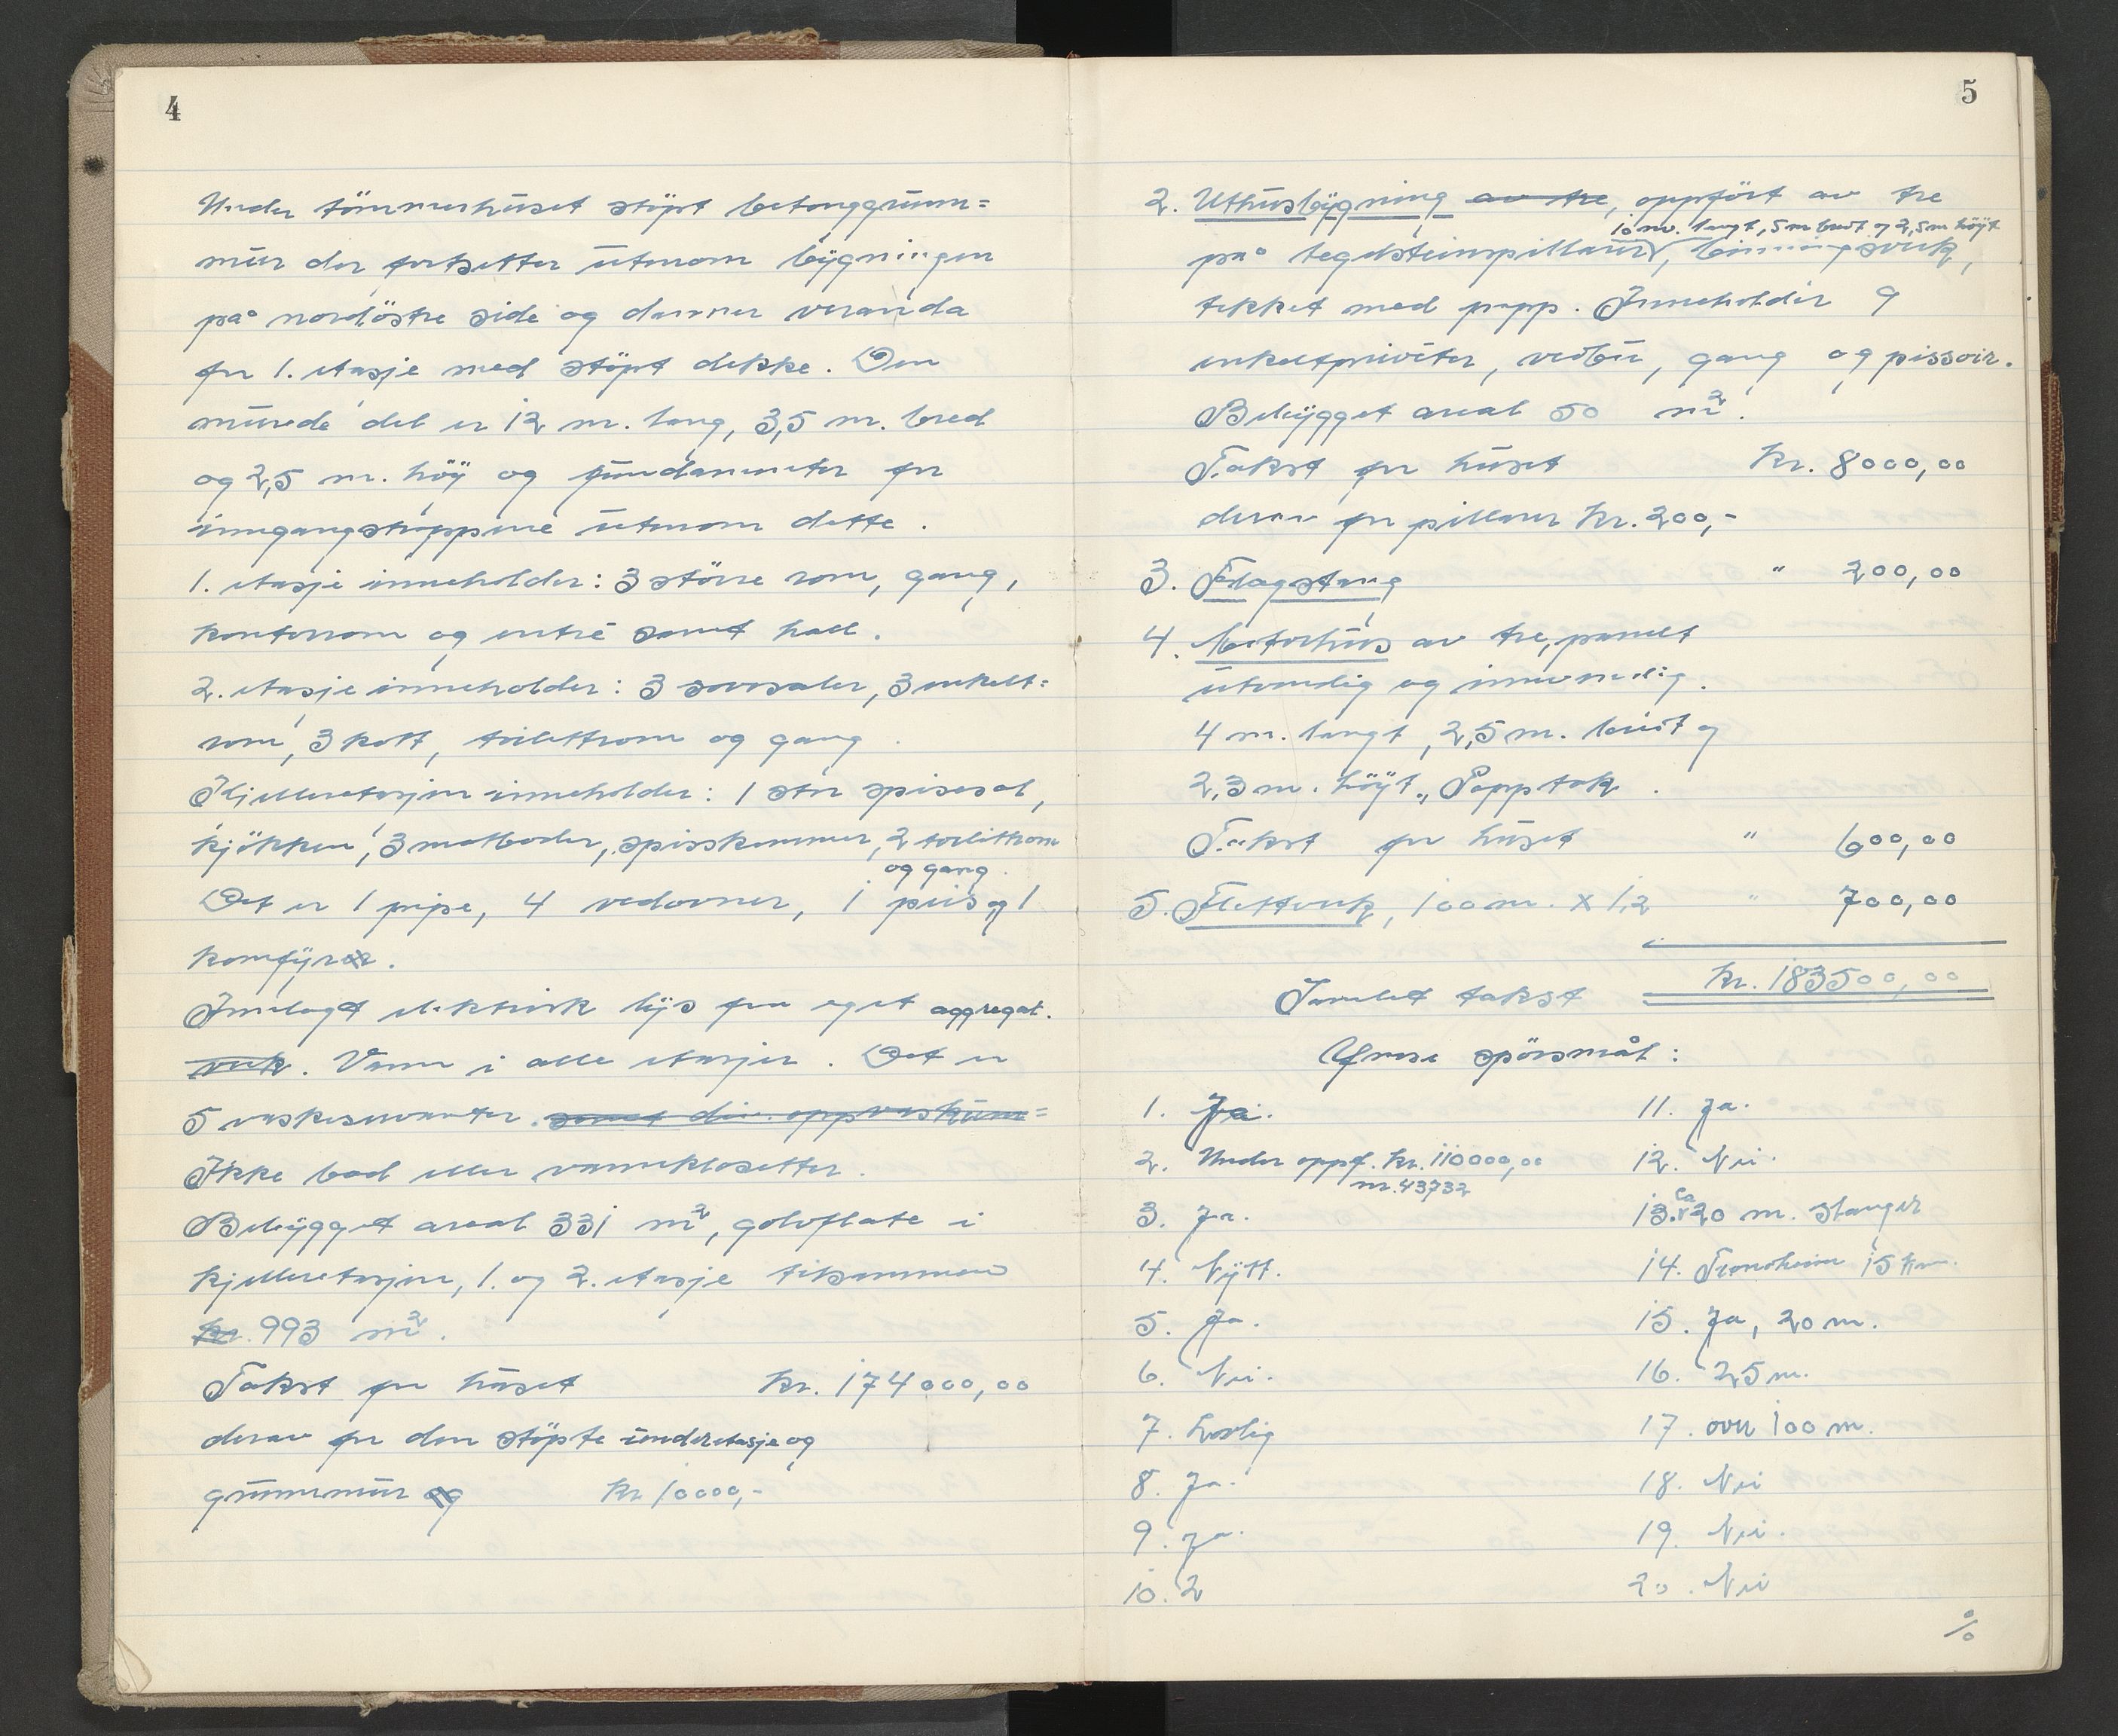 4
Under tömmerhuset stöpt betonggrunn=
mur der fortsetter utenom bygningen
på nordöstre side og danner veranda
for 1. etasje med stöpt dekke. Den
murede del er 12 m. lang, 3,5 m. bred
og 2,5 m. höy og fundamenter for
inngangstrappene utenom dette.
1. etasje inneholder: 3 större rom, gang,
kontorrom og entré samt hall.
2. etasje inneholder: 3 sovesaler, 3 enkelt=
rom, 3 kott, toilettrom og gang.
Kjelleretasjen inneholder: 1 stor spisesal,
kjökken, 3 matboder, spisskammer, 2 toilettrom
og gang.
Det er 1 pipe, 4 vedovner, 1 peis og 1
komfyrer.
Innlagt elektrisk lys fra eget aggregat.
verk. Vann i alle etasjer. Det er
5 vaskeservanter samt div. oppvaskkum=
Ikke bad eller vannklosetter.
Bebygget areal 331 m², golvflate i
kjelleretasjen, 1. og 2. etasje tilsammen
kr. 993 m².
Takst for huset kr. 174000,00
derav for den stöpte underetasje og
grunnmur og kr 10000,-
5
2. Uthusbygning av tre, oppfört av tre
10 m. langt, 5 m bredt og 2,5 m höyt
på teglsteinspillarer, binningsverk,
tekket med papp. Inneholder 9
enkeltpriveter, vedbu, gang og pissoir.
Bebygget areal 50 m².
Takst for huset kr. 8000,00
derav for pillarer kr. 200,-
3. Flagstang " 200,00
4. Motorhus av tre, panelt
utvendig og innvendig.
4 m. langt, 2,5 m. bredt og
2,3 m. höyt., Papptak.
Takst for huset " 600,00
5. Flettverk, 100 m. x 1,2 " 700,00
Samlet takst kr. 183500,00
Ymse spörsmål:
1. Ja. 11. Ja.
2. Under oppf. kr. 110000,00 12. Nei.
nr. 43732
3. Ja. 13. Ca 20 m. Stanger
4. Nytt. 14. Trondheim 15 km.
5. Ja. 15. Ja, 20 m.
6. Nei. 16. 25 m.
7. Lovlig 17. over 100 m.
8. Ja. 18. Nei
9. Ja. 19. Nei.
10. 2 20. Nei
%